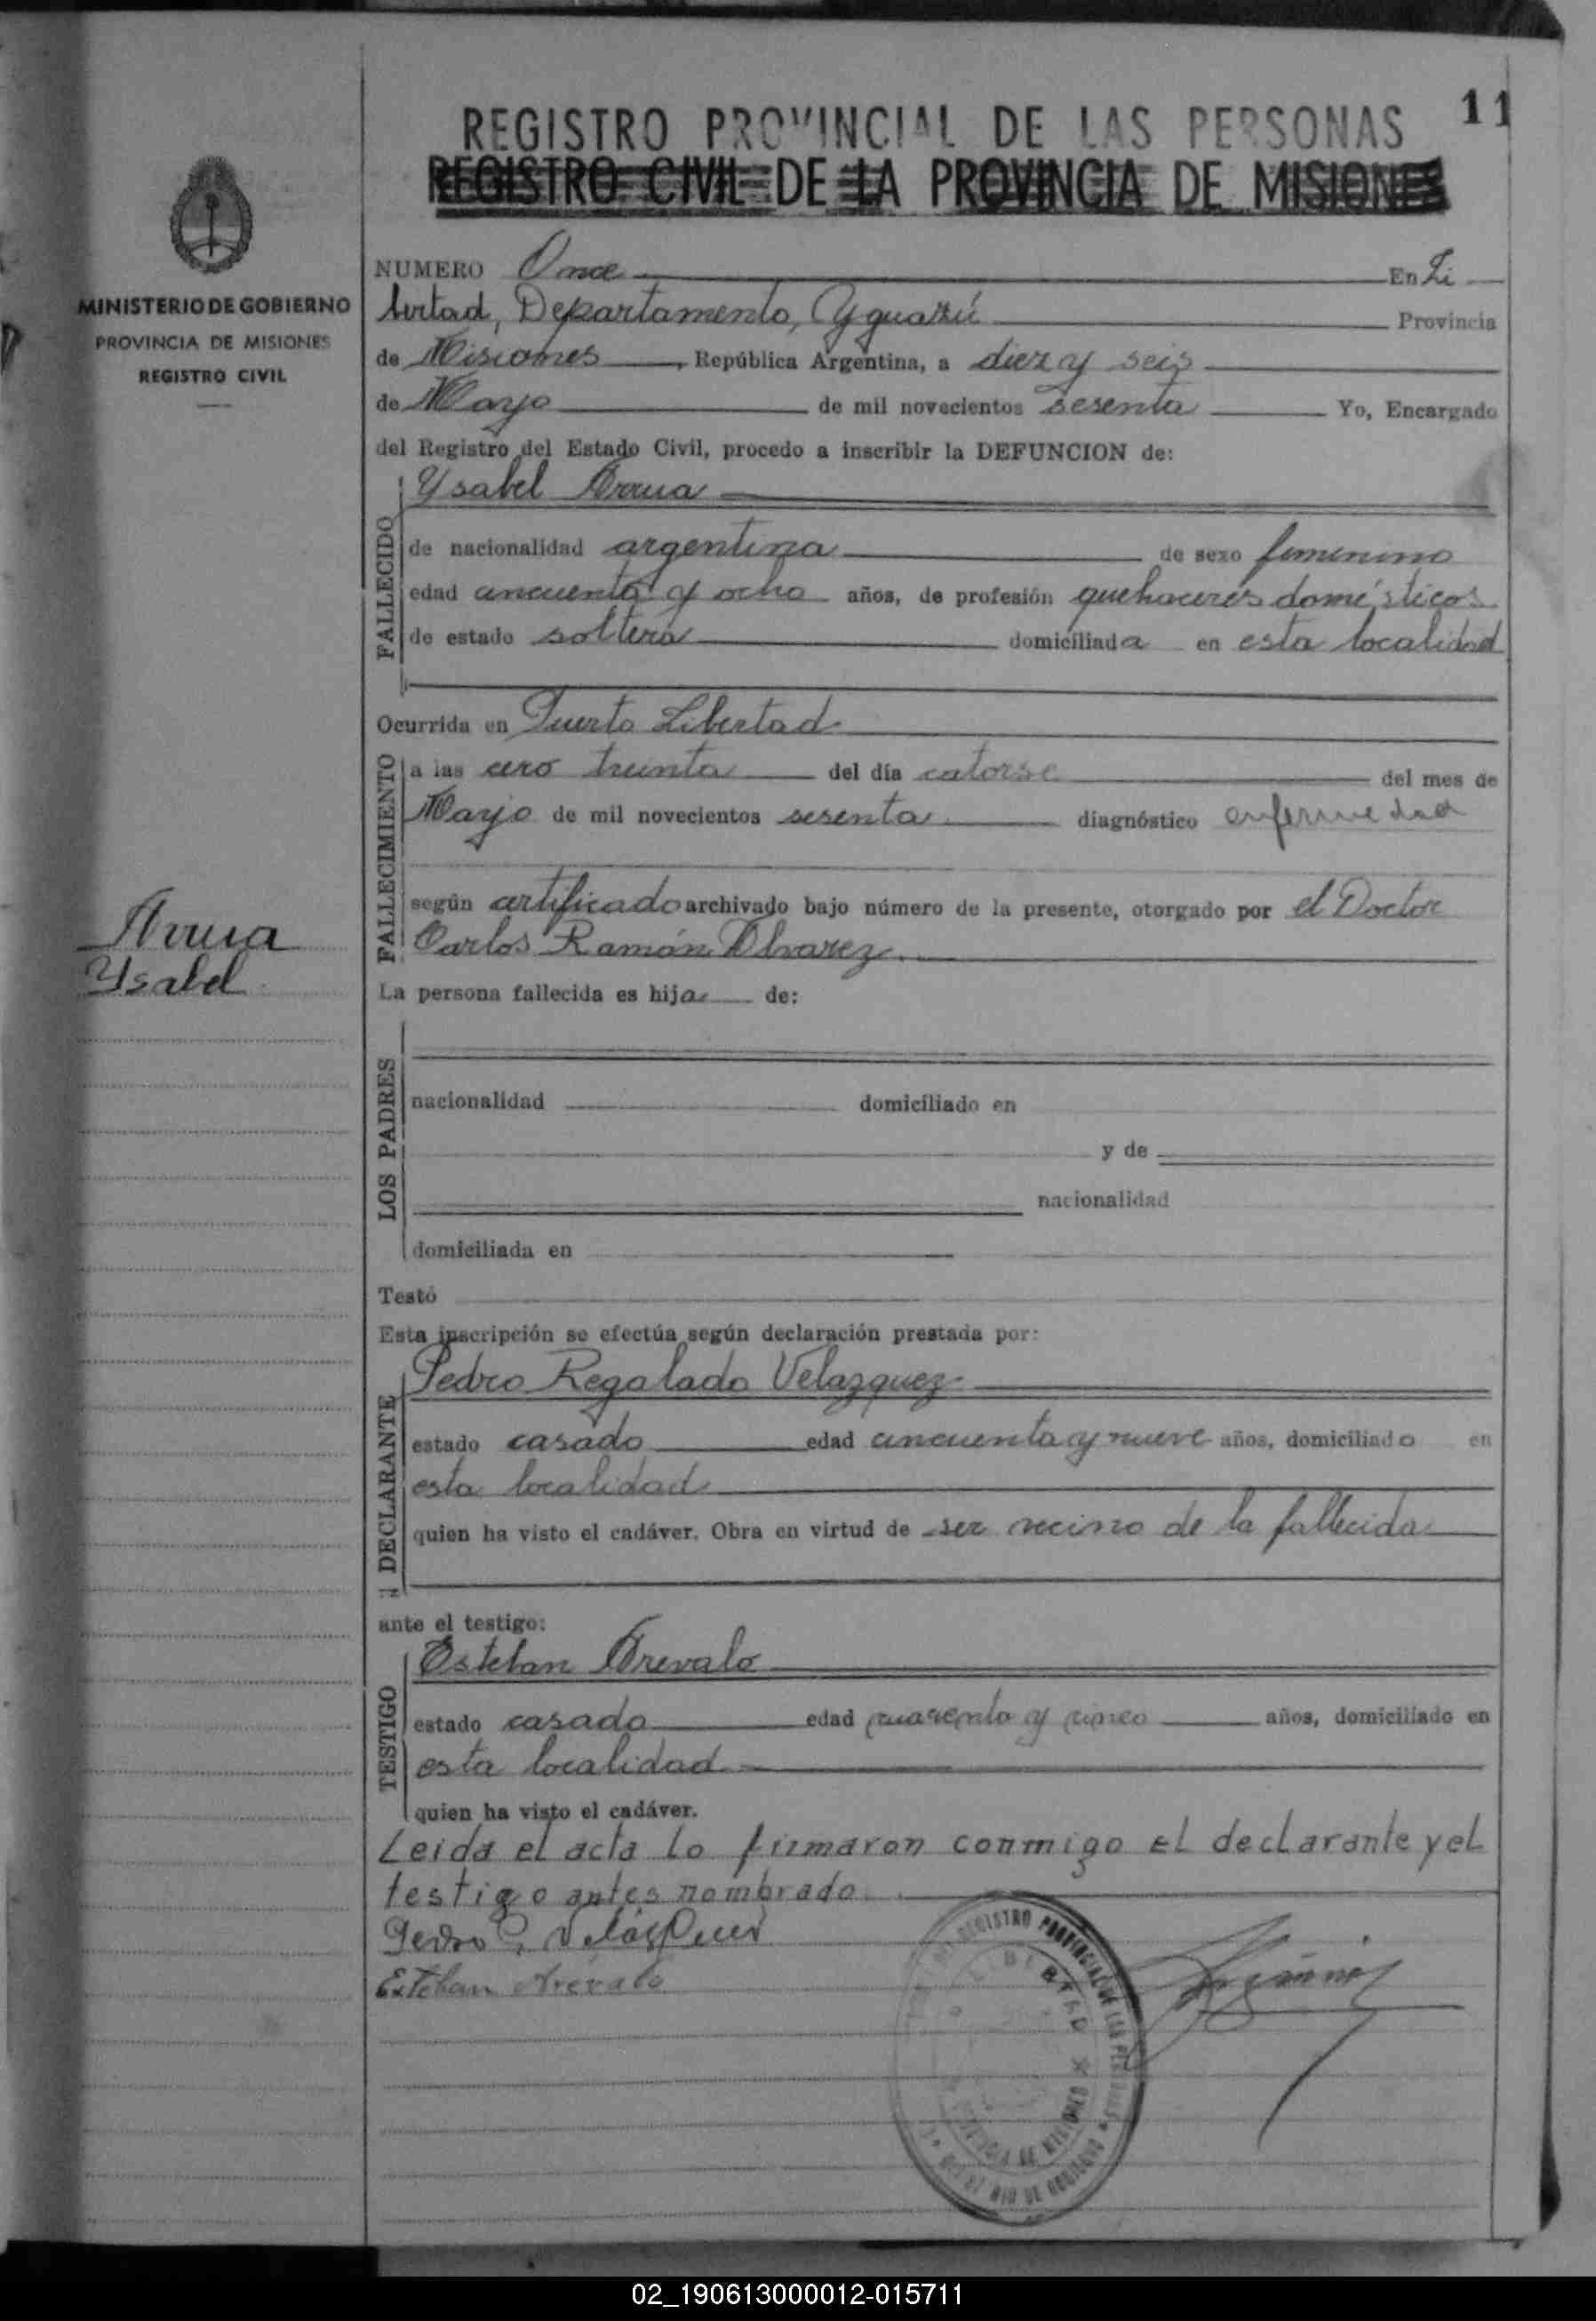 11
REGISTRO PROVINCIAL DE LAS PERSONAS
REGISTRO CIVIL DE LA PROVINCIA DE MISIONES
MINISTERIO DE GOBIERNO
PROVINCIA DE MISIONES
REGISTRO CIVIL
Arrua
Ysabel
NUMERO Once En Li
bertad, Departamento, Yguazú Provincia
de Misiones, República Argentina, a diez y seis
de Mayo de mil novecientos sesenta Yo, Encargado
del Registro del Estado Civil, procedo a inscribir la DEFUNCION de:
Ysabel Arrua
FALLECIDO
de nacionalidad argentina de sexo femenino
edad cincuenta y ocho años, de profesión quehaceres domésticos
de estado soltera domiciliada en esta localidad
Ocurrida en Puerto Libertad
FALLECIMIENTO
a las cero treinta del día catorse del mes de
Mayo de mil novecientos sesenta diagnóstico enfermedad
según certificado archivado bajo número de la presente, otorgado por el Doctor
Carlos Ramón Alvarez
La persona fallecida es hija de:
LOS PADRES
nacionalidad domiciliado en
y de
nacionalidad
domiciliada en
Testó
Esta inscripción se efectúa según declaración prestada por:
Pedro Regalado Velazquez
DECLARANTE
estado casado edad cincuenta y nueve años, domiciliado en
esta localidad
quien ha visto el cadáver. Obra en virtud de ser vecino de la fallecida
ante el testigo:
Esteban Arevalo
TESTIGO
estado casado edad cuarenta y cinco años, domiciliado en
esta localidad
quien ha visto el cadáver.
Leida el acta lo firmaron conmigo el declarante y el
testigo antes nombrado
Esteban Arévalo
REGISTRO PROVINCIAL DE LAS PERSONAS
LIBERTAD
PROVINCIA DE MISIONES
MINISTERIO DE GOBIERNO
02_190613000012-015711